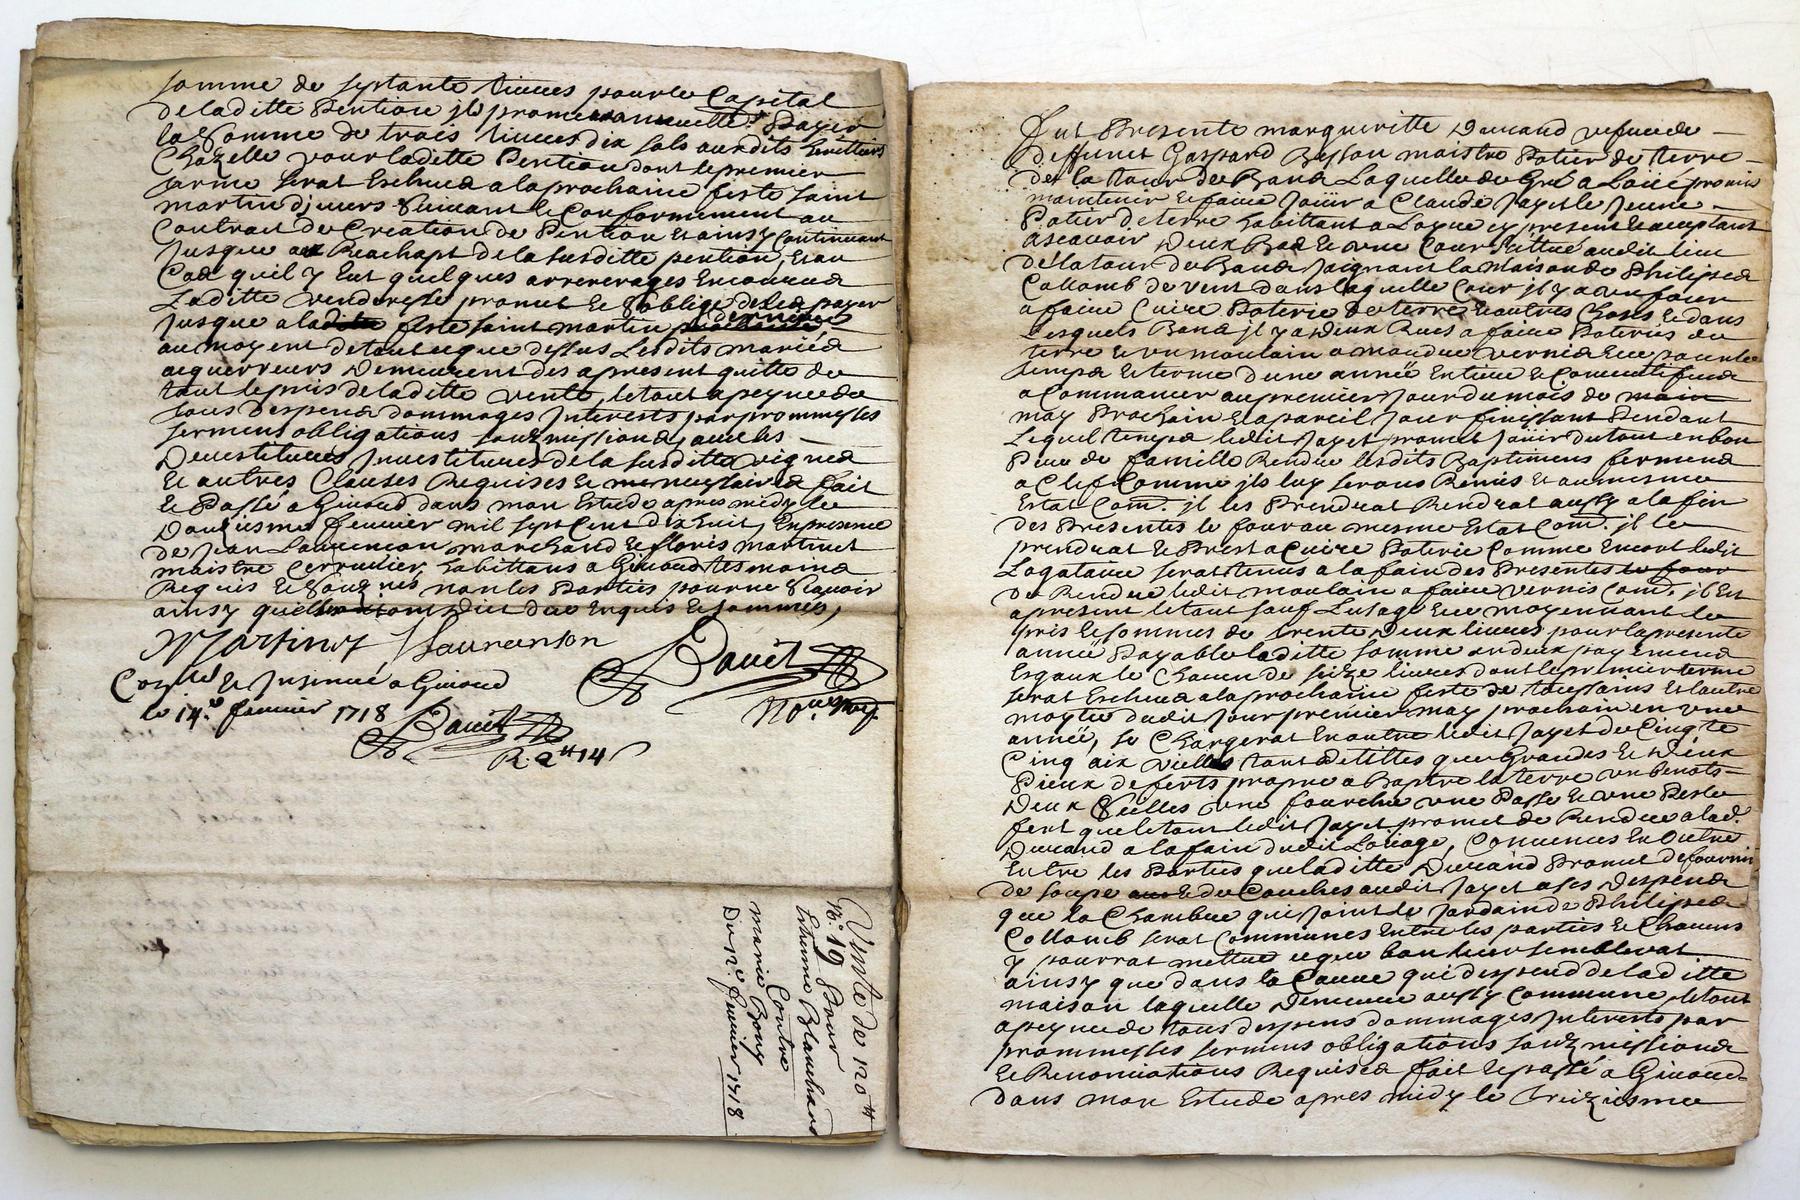 somme de septante livres pour le Capital
de laditte Pention jls promet annuelle.t Payer
la Somme de trois livres dix sols ausdits heritiers
Chazelle pour laditte Pention dont le premier
terme serat Escheud a la prochaine feste saint
martin djvers Suivant & Conformement au
Contrat de Creation de Pention Et ainsy Continuant
Jusque au Reachapt de la susditte pention, Et au
Cas quil y Eut quelques arrerages Encourus
Laditte venderesse promet & Soblige de les payer
Jusque a la feste saint martin derniere
au moyent de tout ce que dessus Lesdits mariés
acquerreurs Demeurent des apresent quitte du
tout le pris de laditte vente, le tout a peyne de
tous despens dommages Jnterests par prommesses
serment obligations soubzmissions, avec les
Devestitures Jnvestitures de la susditte vigne
Et autres Clauses Requises & necessaires fait
& Passé a Givord dans mon Estude apres midy le
Douziesme Janvier mil sept Cent dix huit, En presence
de Jean Laurencon marchand & floris martinet
maistre Cerrurier habittans a Givord tesmoins
Requis & Soubz.nés non les Parties pour ne Scavoir
ainsy quelles ont dict due Enquis & sommés,
Martinet Laurenson
Bouët
Con.llé & Jnsinué a Givord
le 14.e Janvier 1718
Not.re Roy.
Bouët
R. 2 tt 14 s
Vente de 120 tt
N.o 19 Pour
Etienne Blanchard
Contre
marie Bony
Du 12.e Janvier 1718
Fut Presente margueritte Durand vefue de
Deffunct Gaspard Besson maistre Potier de terre
de la Tour de Bans Laquelle de Gré a Loüé promis
maintenir & faire Jouir a Claude Jayet le Jeune
Potier de terre habittant a Loyre cy present & acceptant
Ascavoir Deux Bas & une Cour Sittué audit lieu
de la tour de Bans Joignant la Maison de Philippes
Collomb de vent dans laquelle Cour jl y a un four
a faire Cuire Poterie de terre & autres Choses & dans
Lesquels Bans jl y a Deux Rues a faire Poteries de
terre & un moulain a moudre vernis & ce pour le
temps & terme d une année Entiere & Consecutifue
a Commancer au premier Jour du mois de
may Prochain & a pareil Jour finissant Pendant
Lequel temps ledit Jayet promet Jouir du tout en bon
Pere de famille Rendre lesdits Baptimens fermens
a Clef Comme jls luy serons Remis & au mesme
Estat Com.e jl les Prendrat Rendrat aussy a la fin
des Presentes le four au mesme Estat Com.e jl le
prendrat & Prest a Cuire Poterie Comme Encore ledit
Logataire serat tenus a la fain des Presentes
de Rendre ledit moulain a faire vernis Com.e jl Est
a present le tout sauf Lusage & ce moyennant le
pris & sommes de trente Deux livres pour la presente
année Payable laditte somme en deux payemens
Esgaux & Chacun de seize livres dont le premier terme
serat Escheud a la prochaine feste de toussains & lautre
moytié dudit Jour premier may prochain en une
année, se Chargerat En outre ledit Jayet de Cinq te
Cinq aix vielles tant petittes que Grandes & Deux
Pieux de ferts propre a Baptre la terre un benots
Deux Seilles une fourche une Passe & une Pesle
fert que le tout ledit Jayet promet de Rendre a lad.
Durand a la fain dudit Loüage, Convenus En Outre
Entre les Parties que laditte Durand Promet de fournir
de soupe & de Couches audit Jayet a ses Despens
que la Chambre qui Joint le Jardain de Philippes
Collomb serat Communes Entre les parties & Chacuns
y pourrat mettre ce que bon leur semblerat
ainsy que dans la Cauve qui despend de laditte
maison laquelle Demeure aussy Commune le tout
a peyne de tous despens dommages Jnterests par
prommesses serment obligations soubzmissions
& Renonciations Requises fait & passé a Givord
dans mon Estude apres midy le Treiziesme